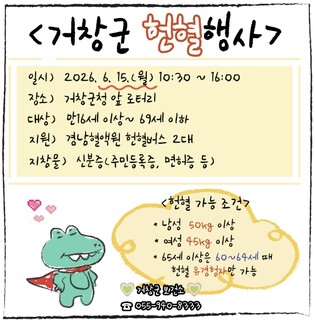 <거창군 헌혈행사>
일시) 2026. 6. 15.(월) 10:30 ~ 16:00
장소) 거창군청 앞 로터리
대상) 만16세 이상~ 69세 이하
지원) 경남혈액원 헌혈버스 2대
지참물) 신분증(주민등록증, 면허증 등)
<헌혈 가능 조건>
• 남성 50kg 이상
• 여성 45kg 이상
• 65세 이상은 60~64세 때
헌혈 유경험자만 가능
거창군 보건소
☎ 055-940-8333